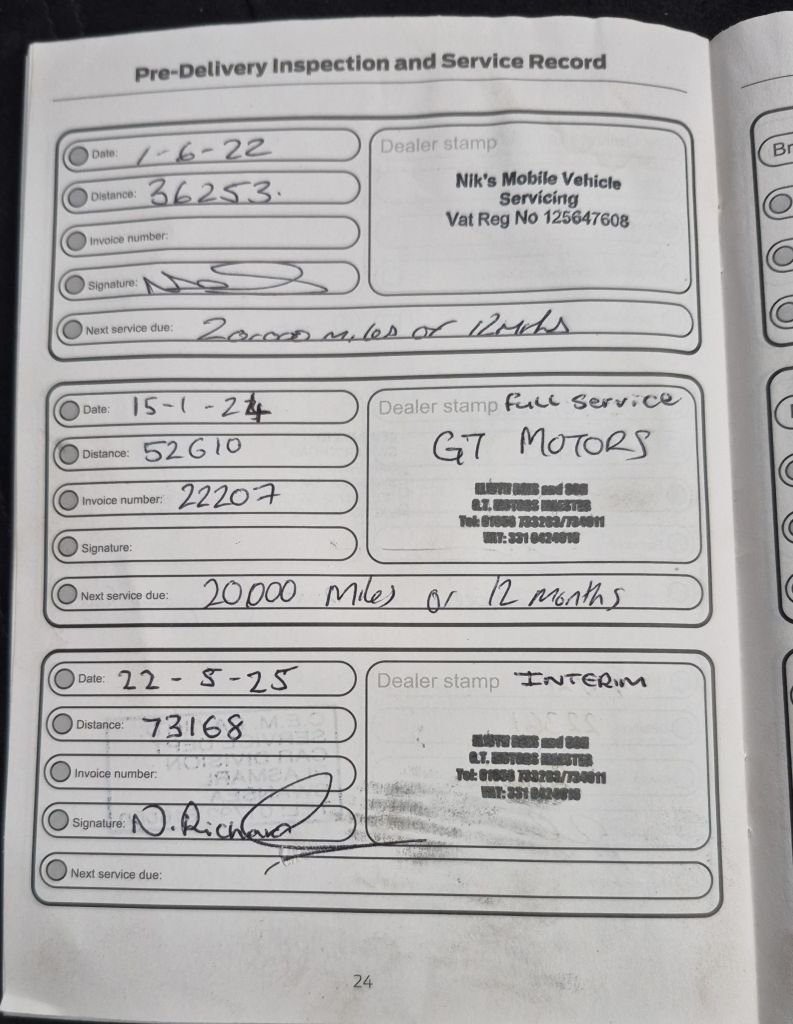 Pre-Delivery Inspection and Service Record
Date: 1-6-22
Distance: 36253.
Invoice number:
Signature:
Next service due: 20,000 miles or 12 Mnths
Dealer stamp
Nik's Mobile Vehicle
Servicing
Vat Reg No 125647608
Date: 15-1-24
Distance: 52610
Invoice number: 22207
Signature:
Next service due: 20000 Miles or 12 Months
Dealer stamp Full Service
GT MOTORS
and SON
G.T. MOTORS
Tel:
VAT: 331
Date: 22-5-25
Distance: 73168
Invoice number:
Signature: N. Richard
Next service due:
Dealer stamp INTERIM
and SON
G.T. MOTORS
Tel:
VAT: 331
24
Br